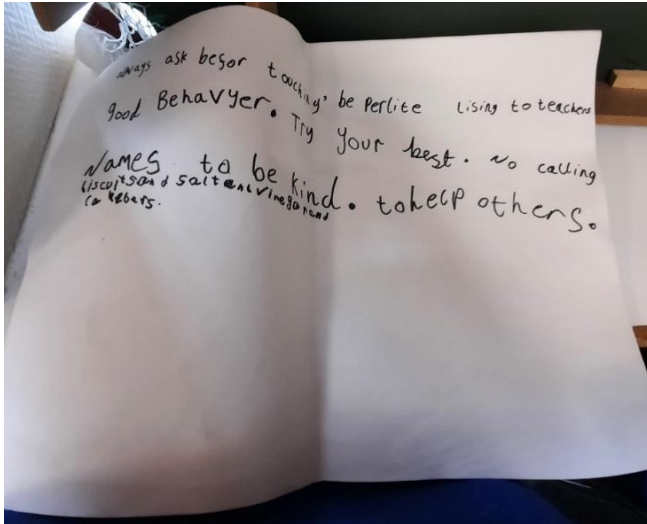 always ask besor touching, be Perlite Lising to teachers
good Behavyer. Try your best. No calling
Names. to be kind. to help others.
biscuits and salt and vinegar and